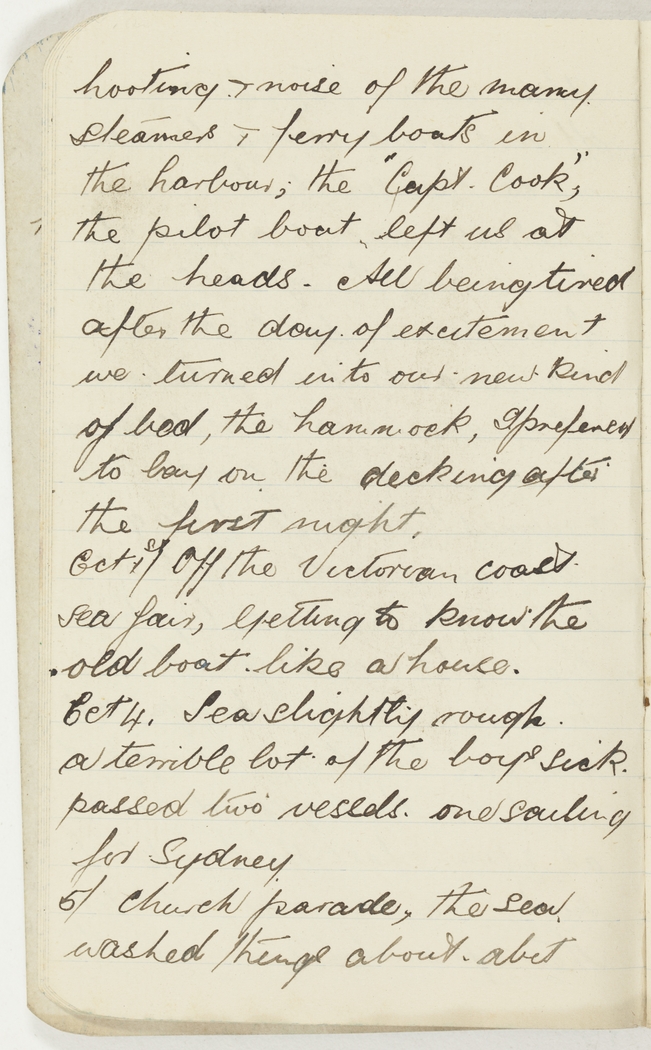 hooting & noise of the many
steamers & ferry boats in
the harbour; the "Capt. Cook",
the pilot boat left us at
the heads. All being tired
after the day of excitement
we turned into our new kind
of bed, the hammock, I preferred
to lay on the decking after
the first night.
Oct 1st/ Off the Victorian coast
sea fair, getting to know the
old boat like a house.
Oct 4. Sea slightly rough.
a terrible lot of the boys sick.
passed two vessels. one sailing
for Sydney
5/ Church parade, the sea
washed things about abit